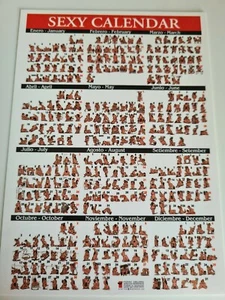 SEXY CALENDAR
Enero - January
Febrero - February
Marzo - March
Abril - April
Mayo - May
Junio - June
Julio - July
Agosto - August
Setiembre - Setember
Octubre - October
Noviembre - November
Diciembre - December